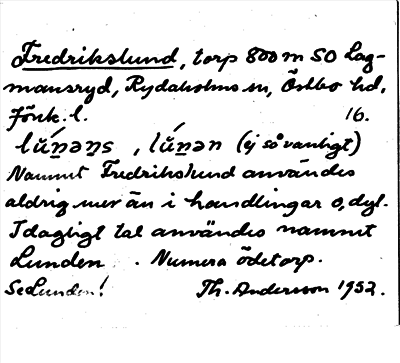 Fredrikslund, torp 800 m SO Lag-
mansryd, Rydaholms sn, Östbo hd,
Jönk. l. 16.
lún̠ən̠s , lún̠ən (ej så vanligt)
Namnet Fredrikslund användes
aldrig mer än i handlingar o, dyl.
I dagligt tal användes namnet
Lunden . Numera ödetorp.
Se Lunden! Th. Andersson 1952.